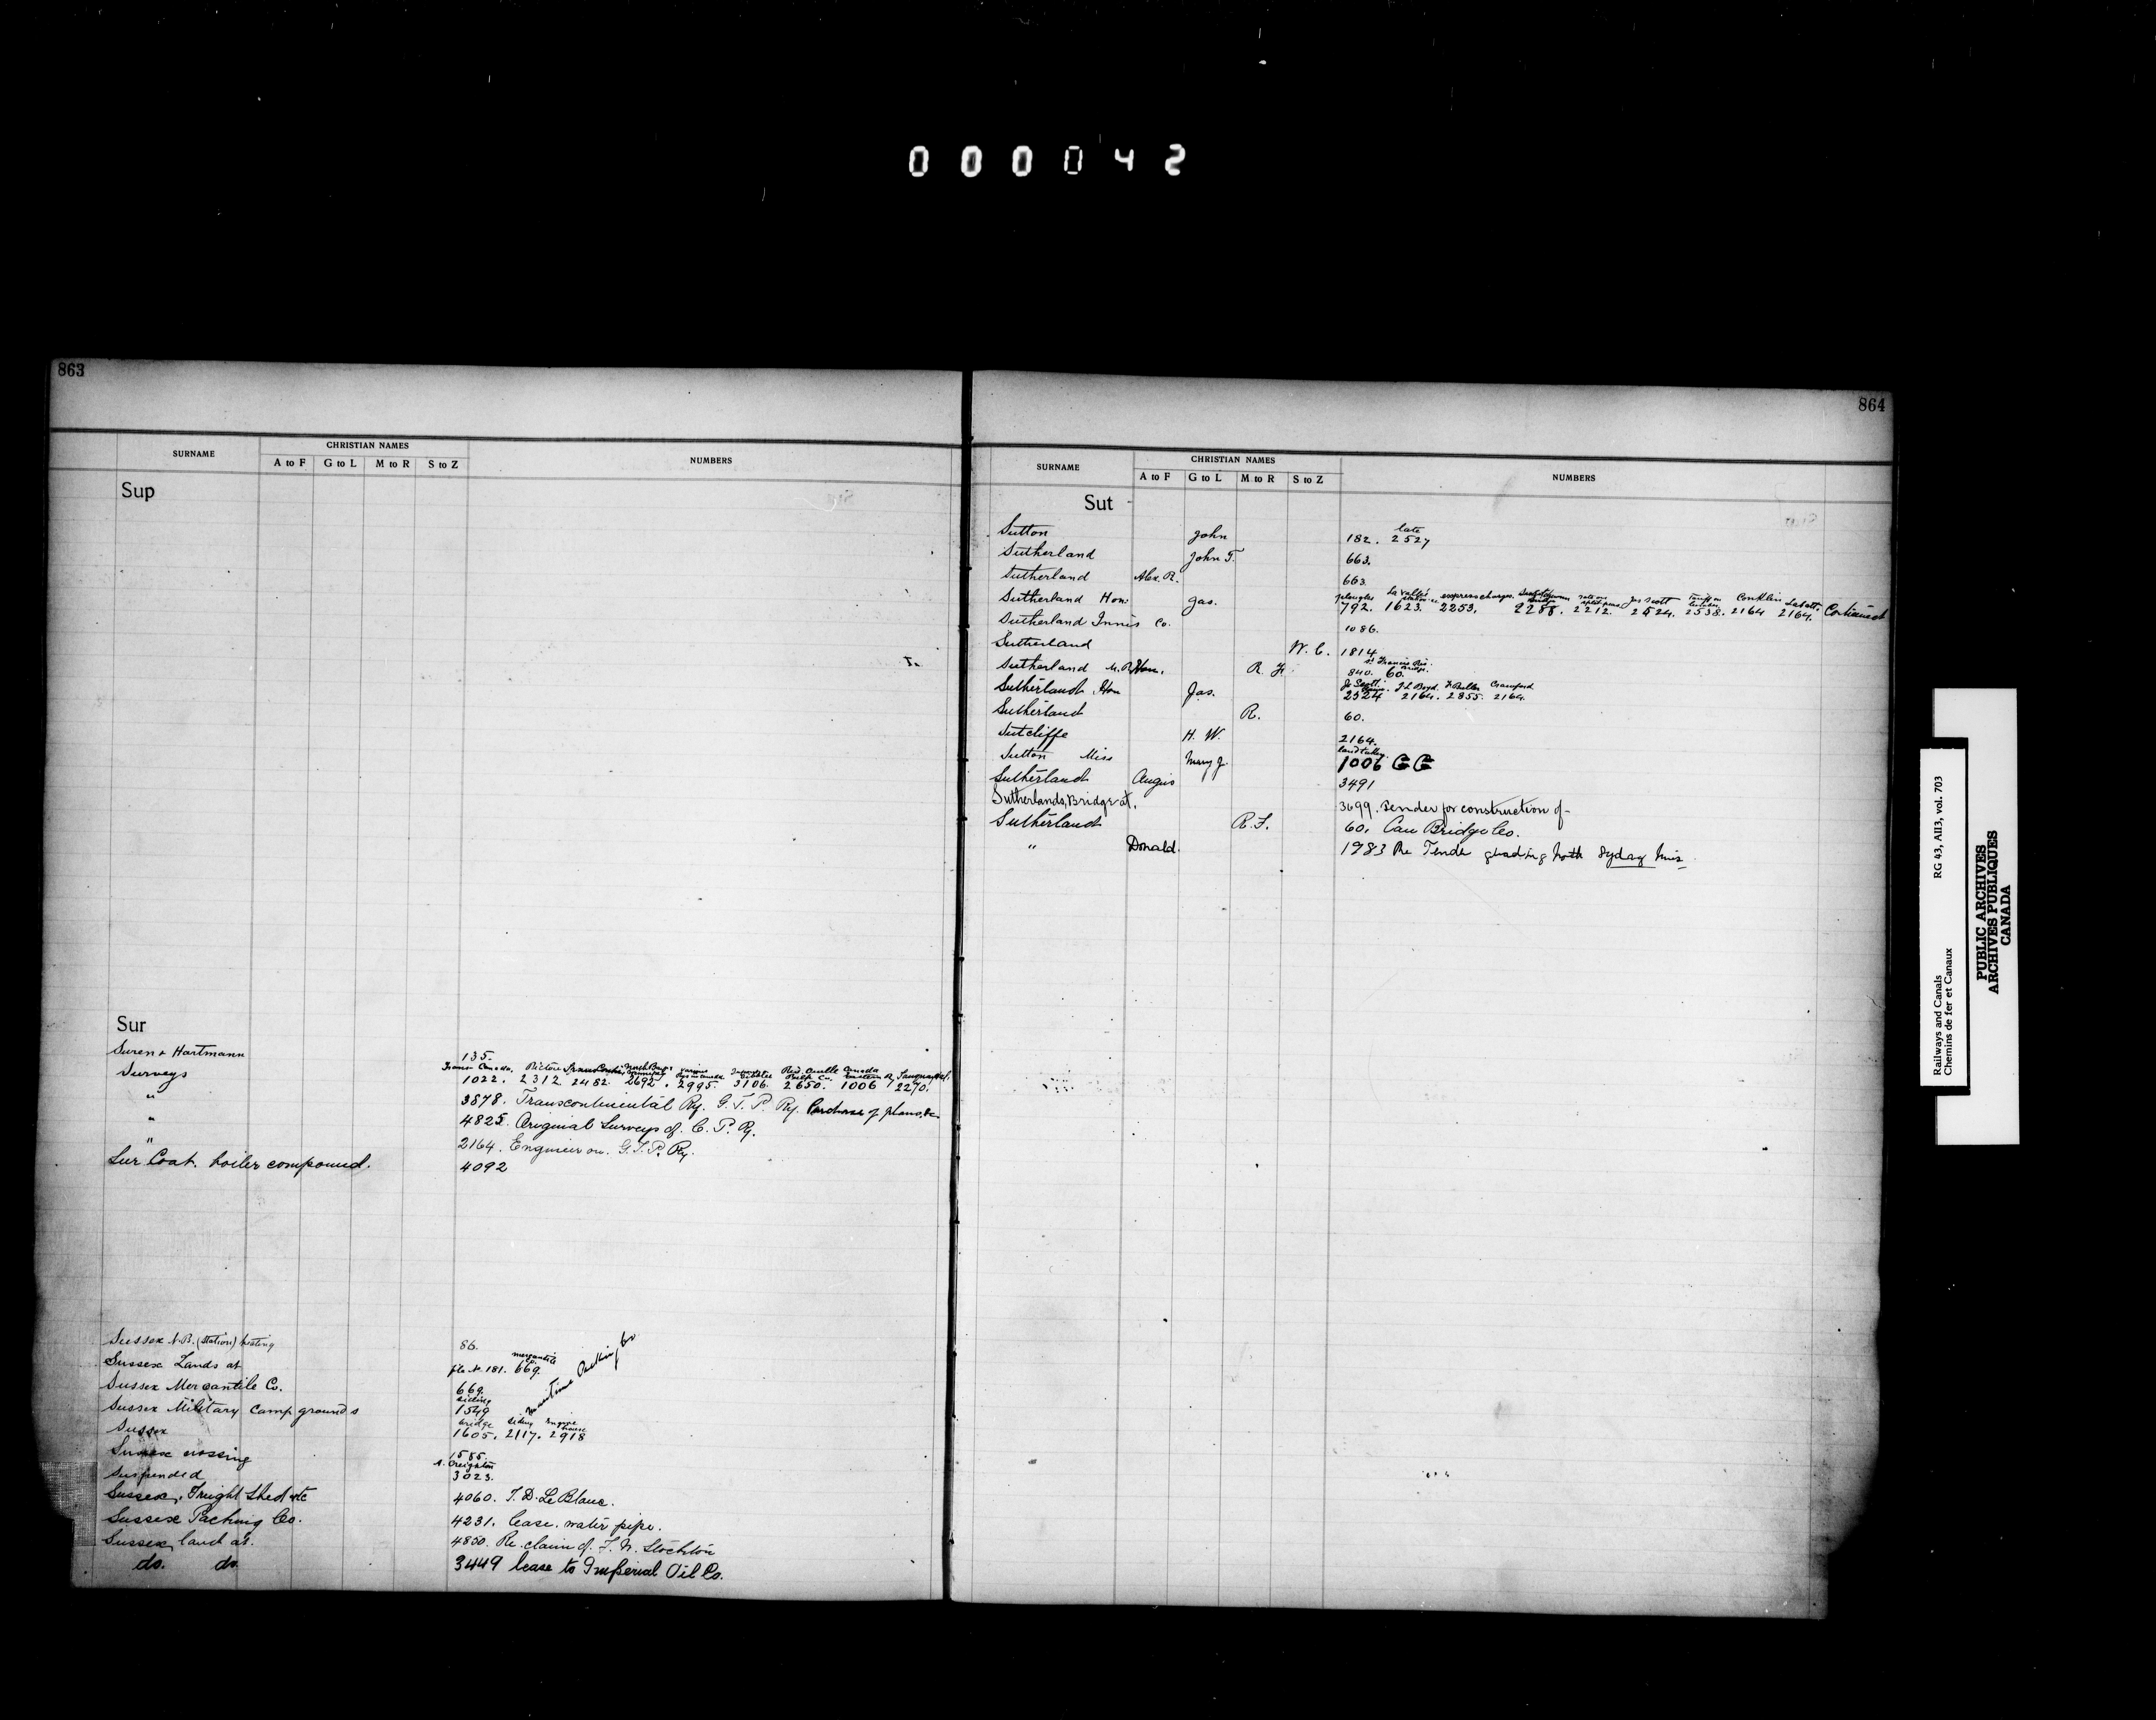 000042
863
SURNAME CHRISTIAN NAMES NUMBERS
A to F G to L M to R S to Z
Sup
Sur
Suren & Hartmann 135.
Trans Canada. Pictou various Canada
Surveys 1022. 2312 2482. 2692. 2995. 3106. 2650. 1006 2270.
" 3878. Transcontinental Ry. G.T.P. Ry. Purchase of plans, &c
" 4825. Original Surveys of C.P.Ry.
" 2164. Engineer on G.T.P. Ry.
Sur Coat. boiler compound. 4092
Sussex N.B. (Station) heating 86.
mercantile Co.
Sussex Lands at file No. 181. 669.
Maritime Packing Co
Sussex Mercantile Co. 669.
siding
Sussex Military Camp grounds 1549
bridge siding engine house
Sussex 1605. 2117. 2918
Sussex crossing 1585.
A. Creighton
Suspended 3023.
Sussex, Freight Shed etc 4060. T. D. LeBlanc.
Sussex Packing Co. 4231. lease. water pipe.
Sussex land at. 4850. Re. claim of. F. W. Stockton
do. do. 3449 lease to Imperial Oil Co.
864
SURNAME CHRISTIAN NAMES NUMBERS
A to F G to L M to R S to Z
Sut
late
Sutton John 182. 2527
Sutherland John T. 663.
Sutherland Alex. R. 663.
ploughs La vallée station express charges. Jas Scott Conklin Labatt.
Sutherland Hon. Jas. 792. 1623. 2253. 2288. 2212. 2524. 2538. 2164 2164. Continued
Sutherland Innis Co. 1086.
Sutherland W. C. 1814
St Francis Riv. Bridge.
Sutherland M.P. Hon. R. F. 840. 60.
J. Scott. J L Boyd. Crawford
Sutherland, Hon Jas. 2524 2164. 2855. 2164.
Sutherland R. 60.
Sutcliffe H. W. 2164.
land taken
Sutton Miss Mary J. 1006
Sutherland Angus 3491
Sutherlands, Bridge at. 3699. Tender for construction of-
Sutherland R.F. 60. Can Bridge Co.
" Donald. 1983 Re Tender grading North Sydney
Railways and Canals RG 43, AII3, vol. 703
Chemins de fer et Canaux
PUBLIC ARCHIVES
ARCHIVES PUBLIQUES
CANADA